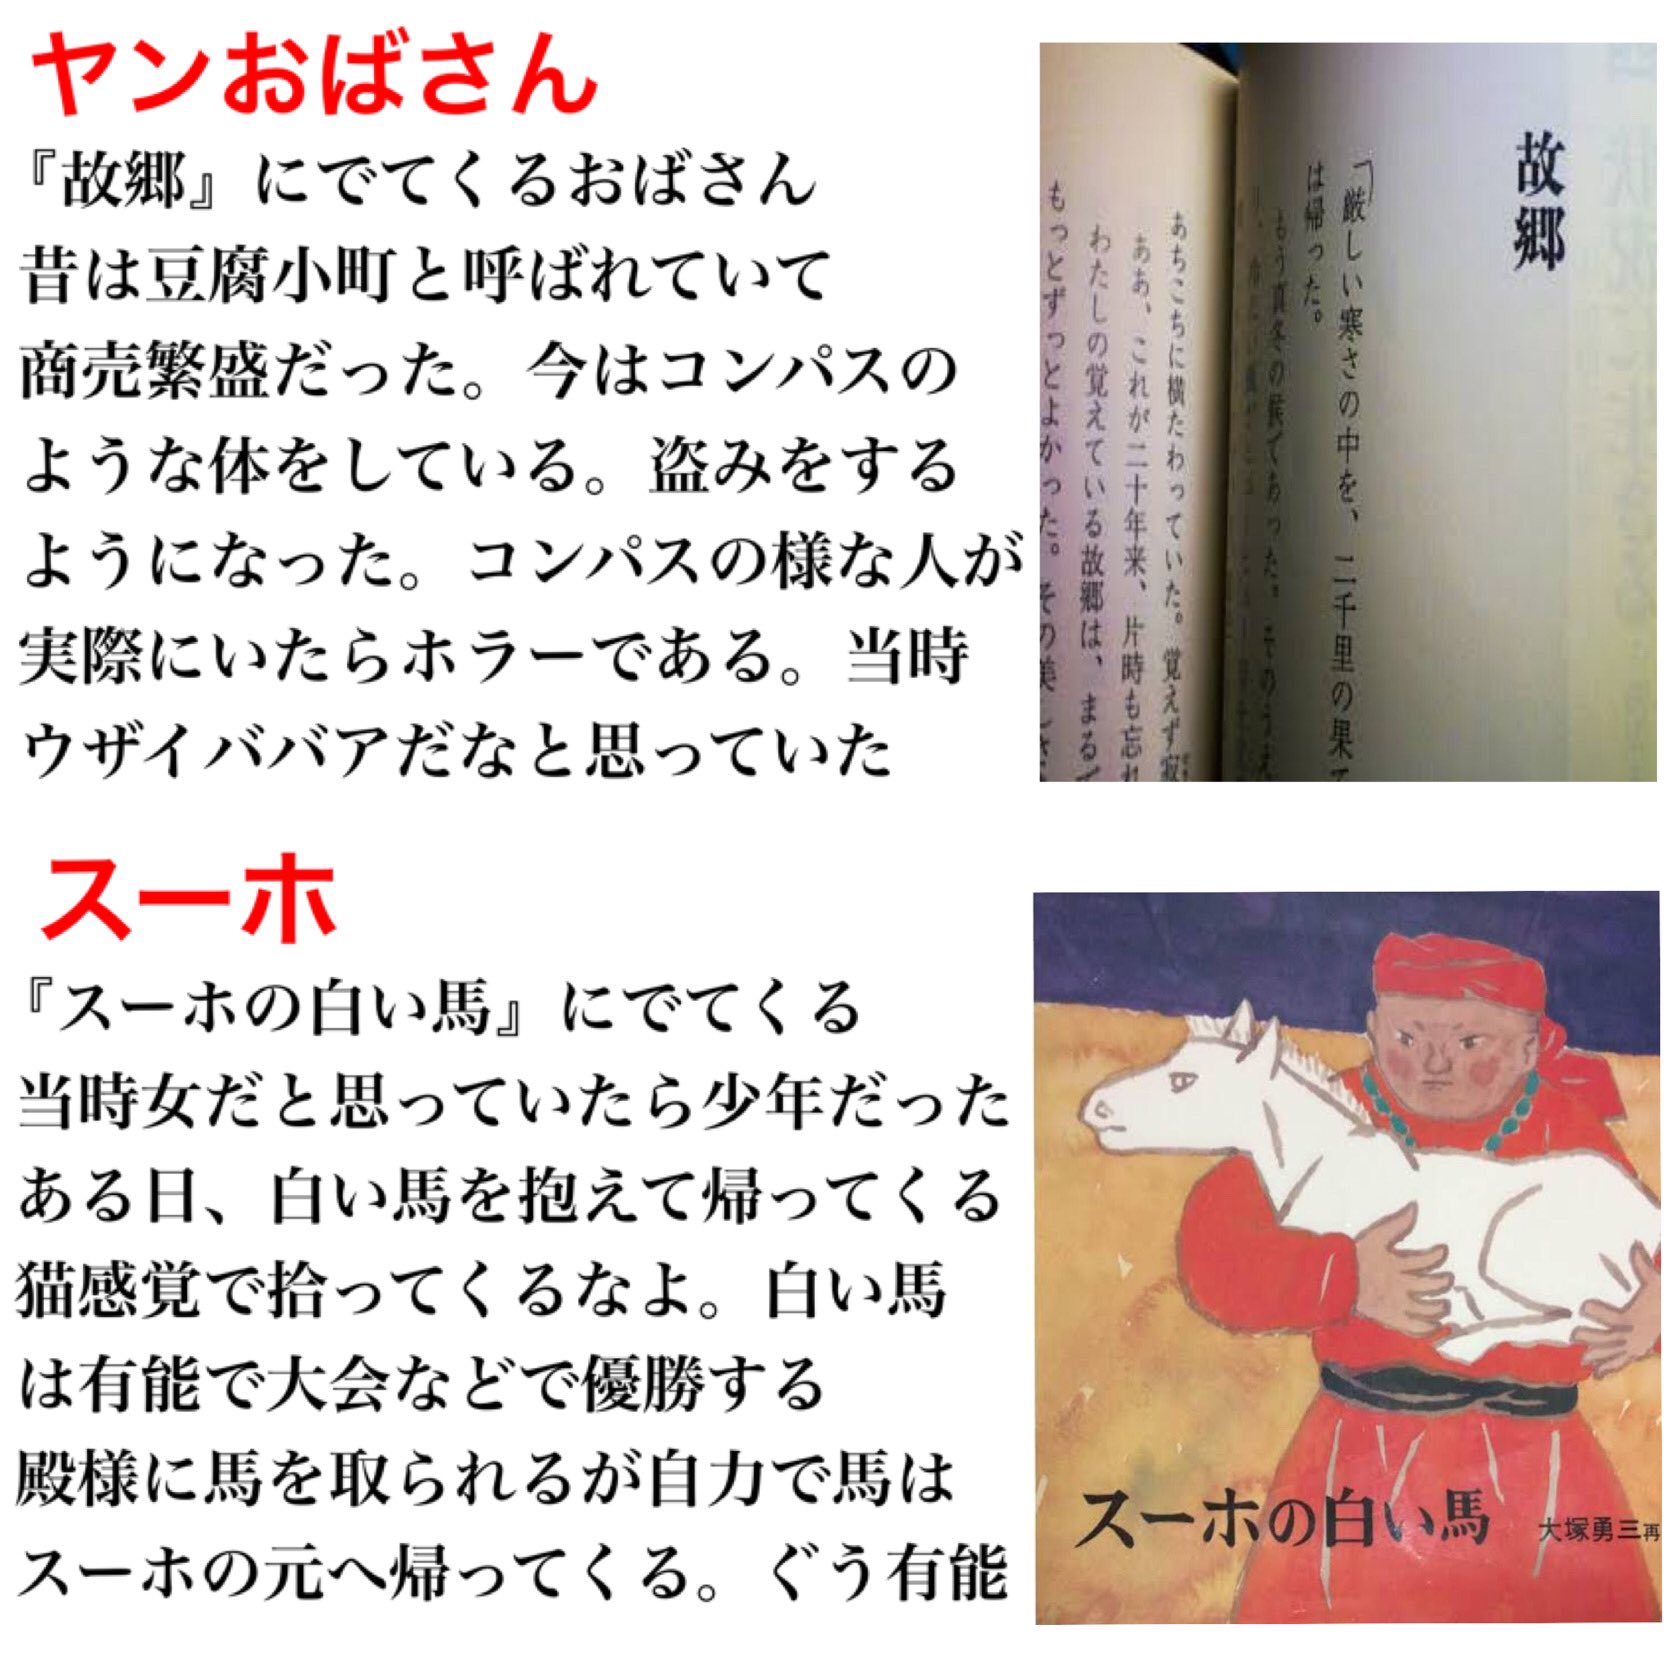 ヤンおばさん
『故郷』にでてくるおばさん
昔は豆腐小町と呼ばれていて
商売繁盛だった。今はコンパスの
ような体をしている。盗みをする
ようになった。コンパスの様な人が
実際にいたらホラーである。当時
ウザイババアだなと思っていた
故郷
厳しい寒さの中を、二千里の果て
は帰った。
もう真冬の候であった。そのうえ
あちこちに横たわっていた。覚えず寂
ああ、これが二十年来、片時も忘れ
わたしの覚えている故郷は、まる
もっとずっとよかった。その美しさ
スーホ
『スーホの白い馬』にでてくる
当時女だと思っていたら少年だった
ある日、白い馬を抱えて帰ってくる
猫感覚で拾ってくるなよ。白い馬
は有能で大会などで優勝する
殿様に馬を取られるが自力で馬は
スーホの元へ帰ってくる。ぐう有能
スーホの白い馬
大塚勇三再